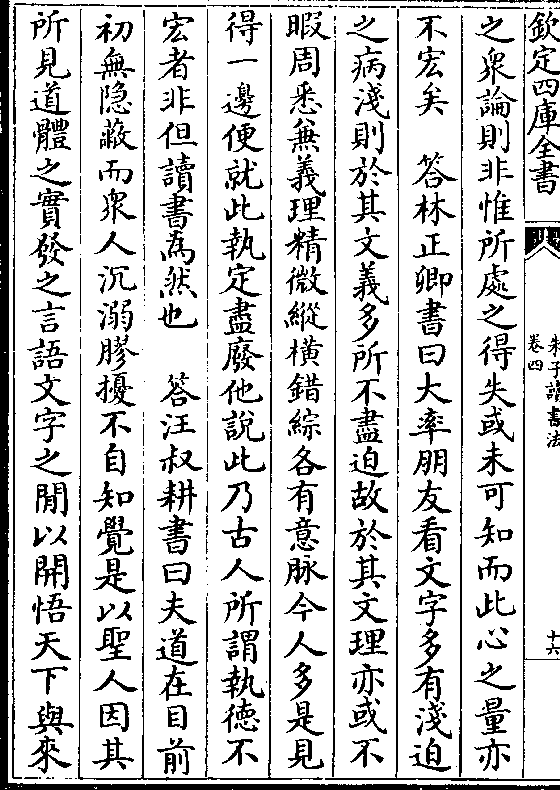 欽定四庫全書
朱子讀書法
卷四
十六
之衆論則非惟所處之得失或未可知而此心之量亦
不宏矣　答林正卿書曰大率朋友看文字多有淺迫
之病淺則於其文義多所不盡迫故於其文理亦或不
暇周悉兼義理精微縱横錯綜各有意脉今人多是見
得一邊便就此執定盡廢他說此乃古人所謂執德不
宏者非但讀書為然也　答汪叔耕書曰夫道在目前
初無隐蔽而衆人沉溺膠擾不自知覺是以聖人因其
所見道體之實發之言語文字之間以開悟天下與來